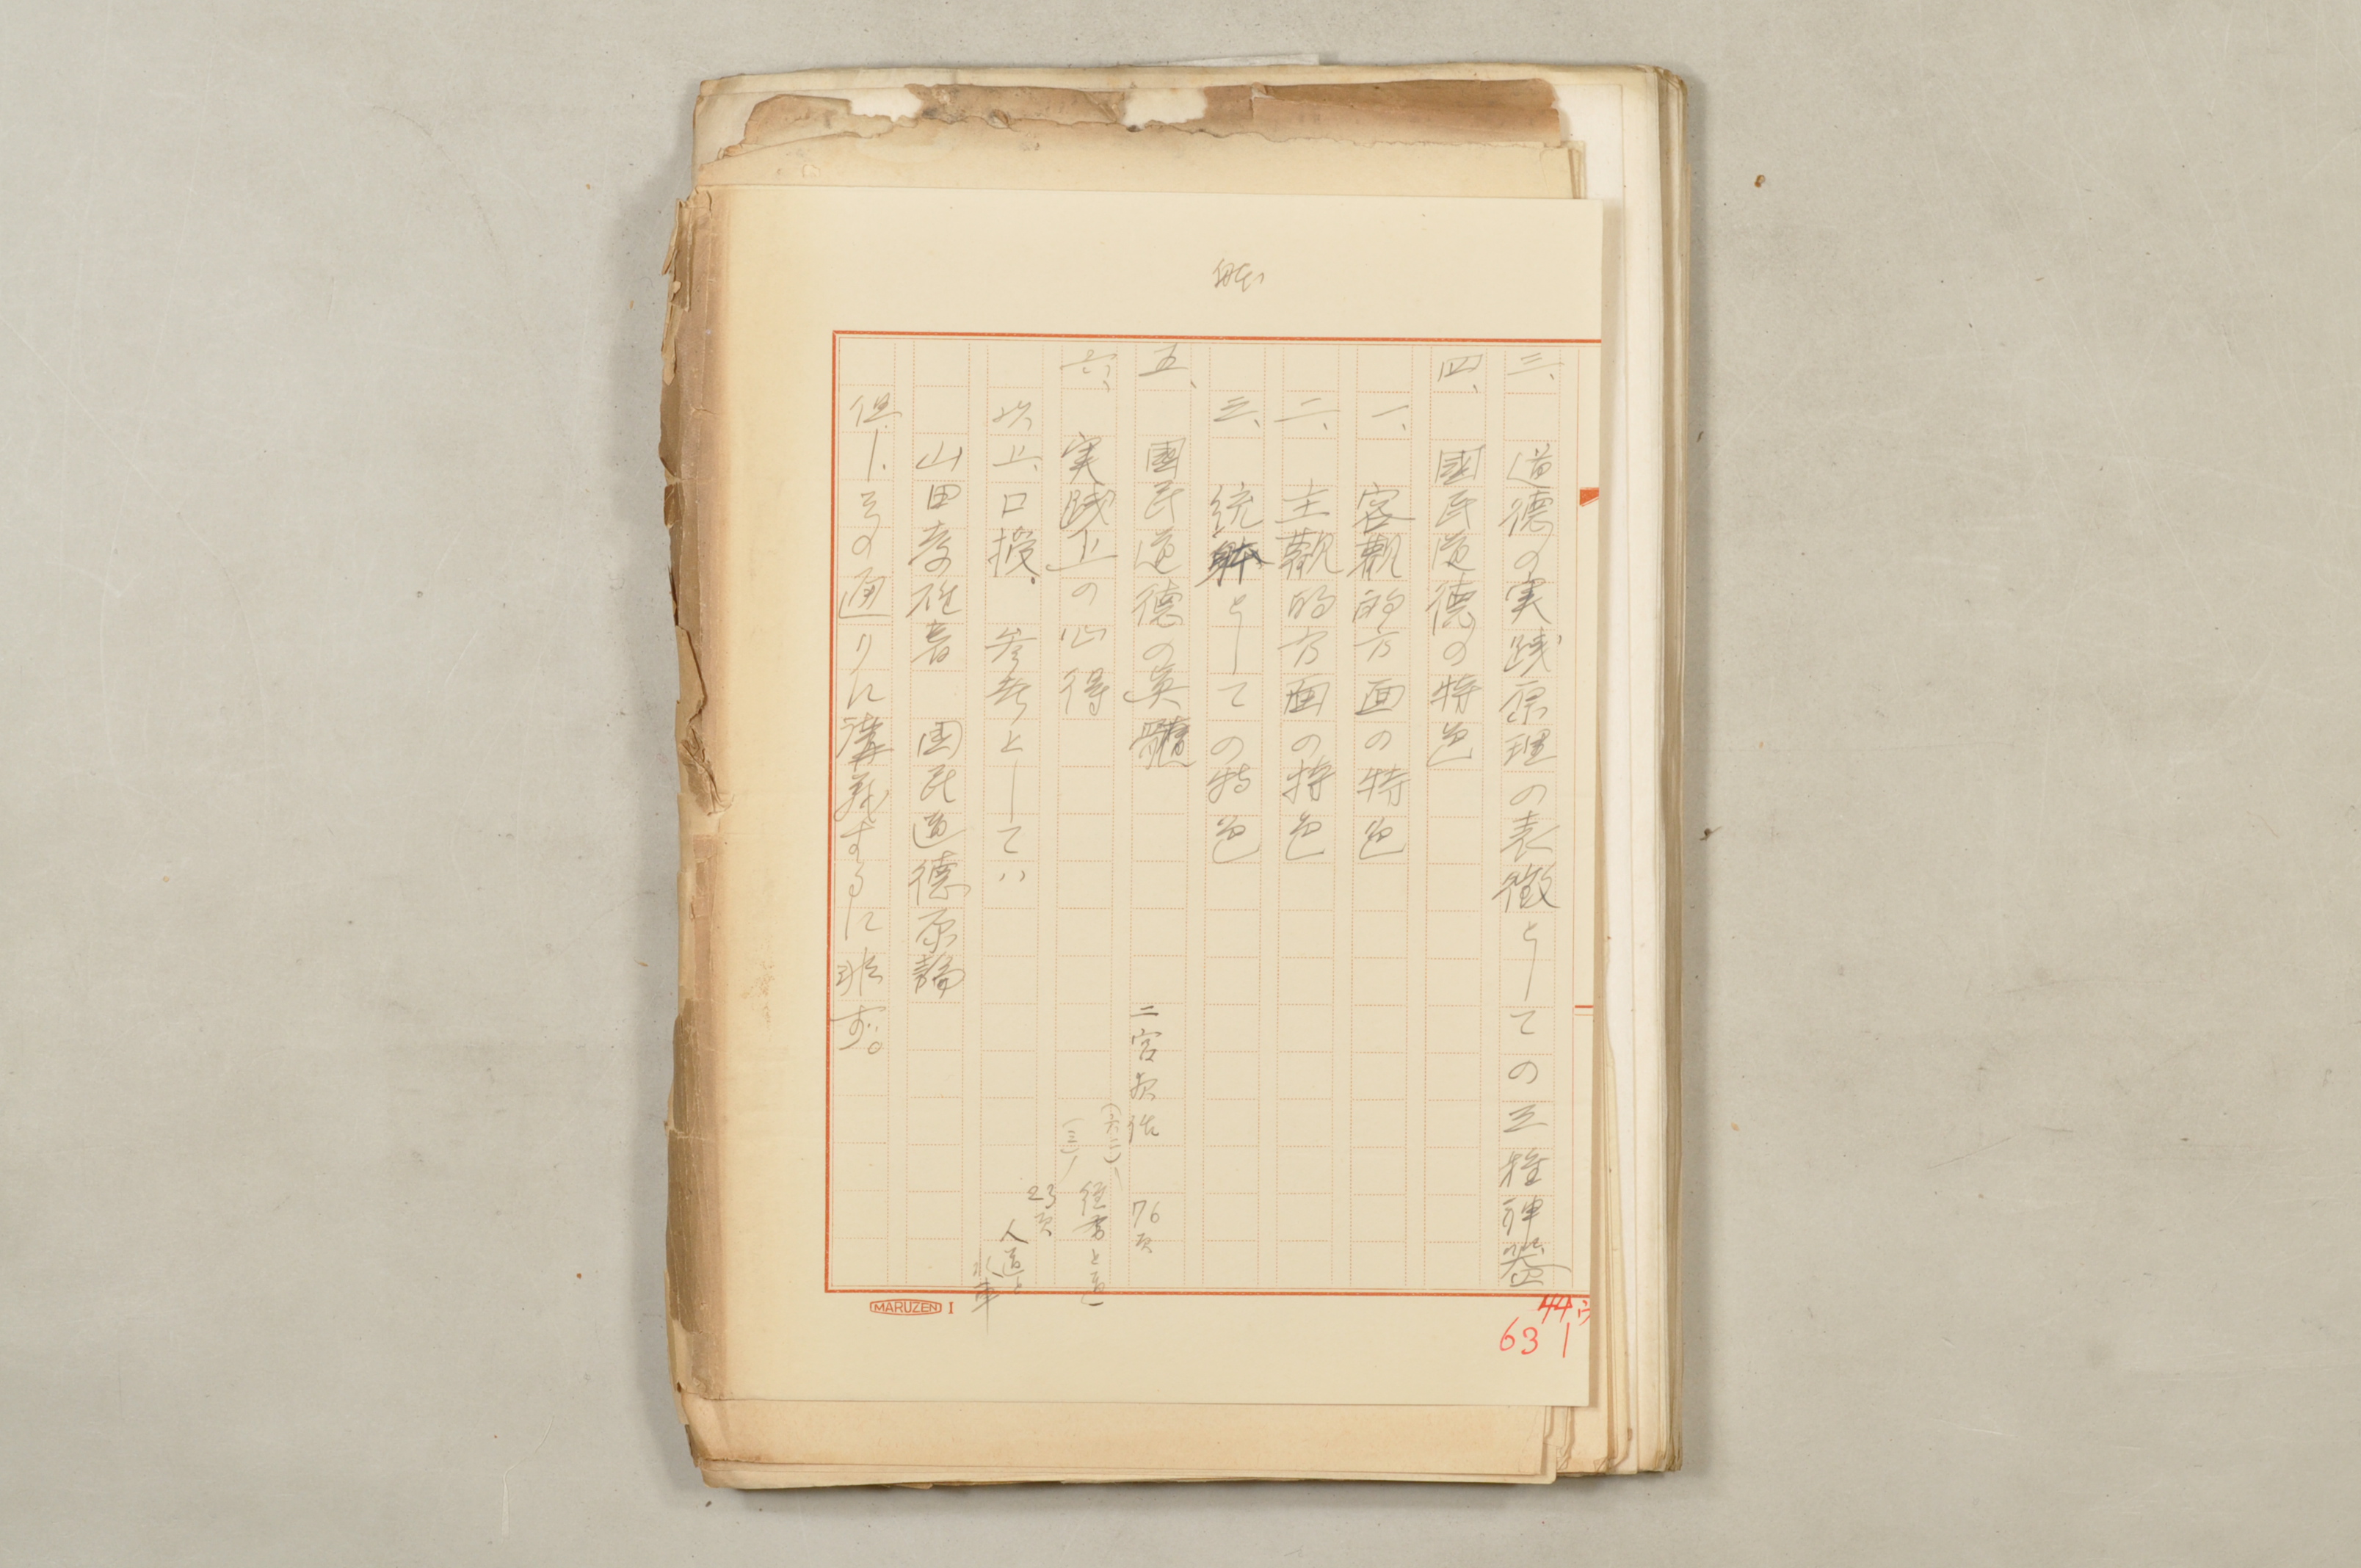 三、道德の実践原理の表徴としての三種神器
四、國民道德の特色
一、客觀的方面の特色
二、主觀的方面の特色
三、統躰としての特色
五、國民道德の英髓
六、実践上の心得
以上、口授、参考としては
山田孝雄著 国民道德原論
但し、その通りに講義するに非ず。
二宮夜話 76頁
(六二) 経書と道
(三) 23頁
人道と
水車
44ウ
63 1
MARUZEN I